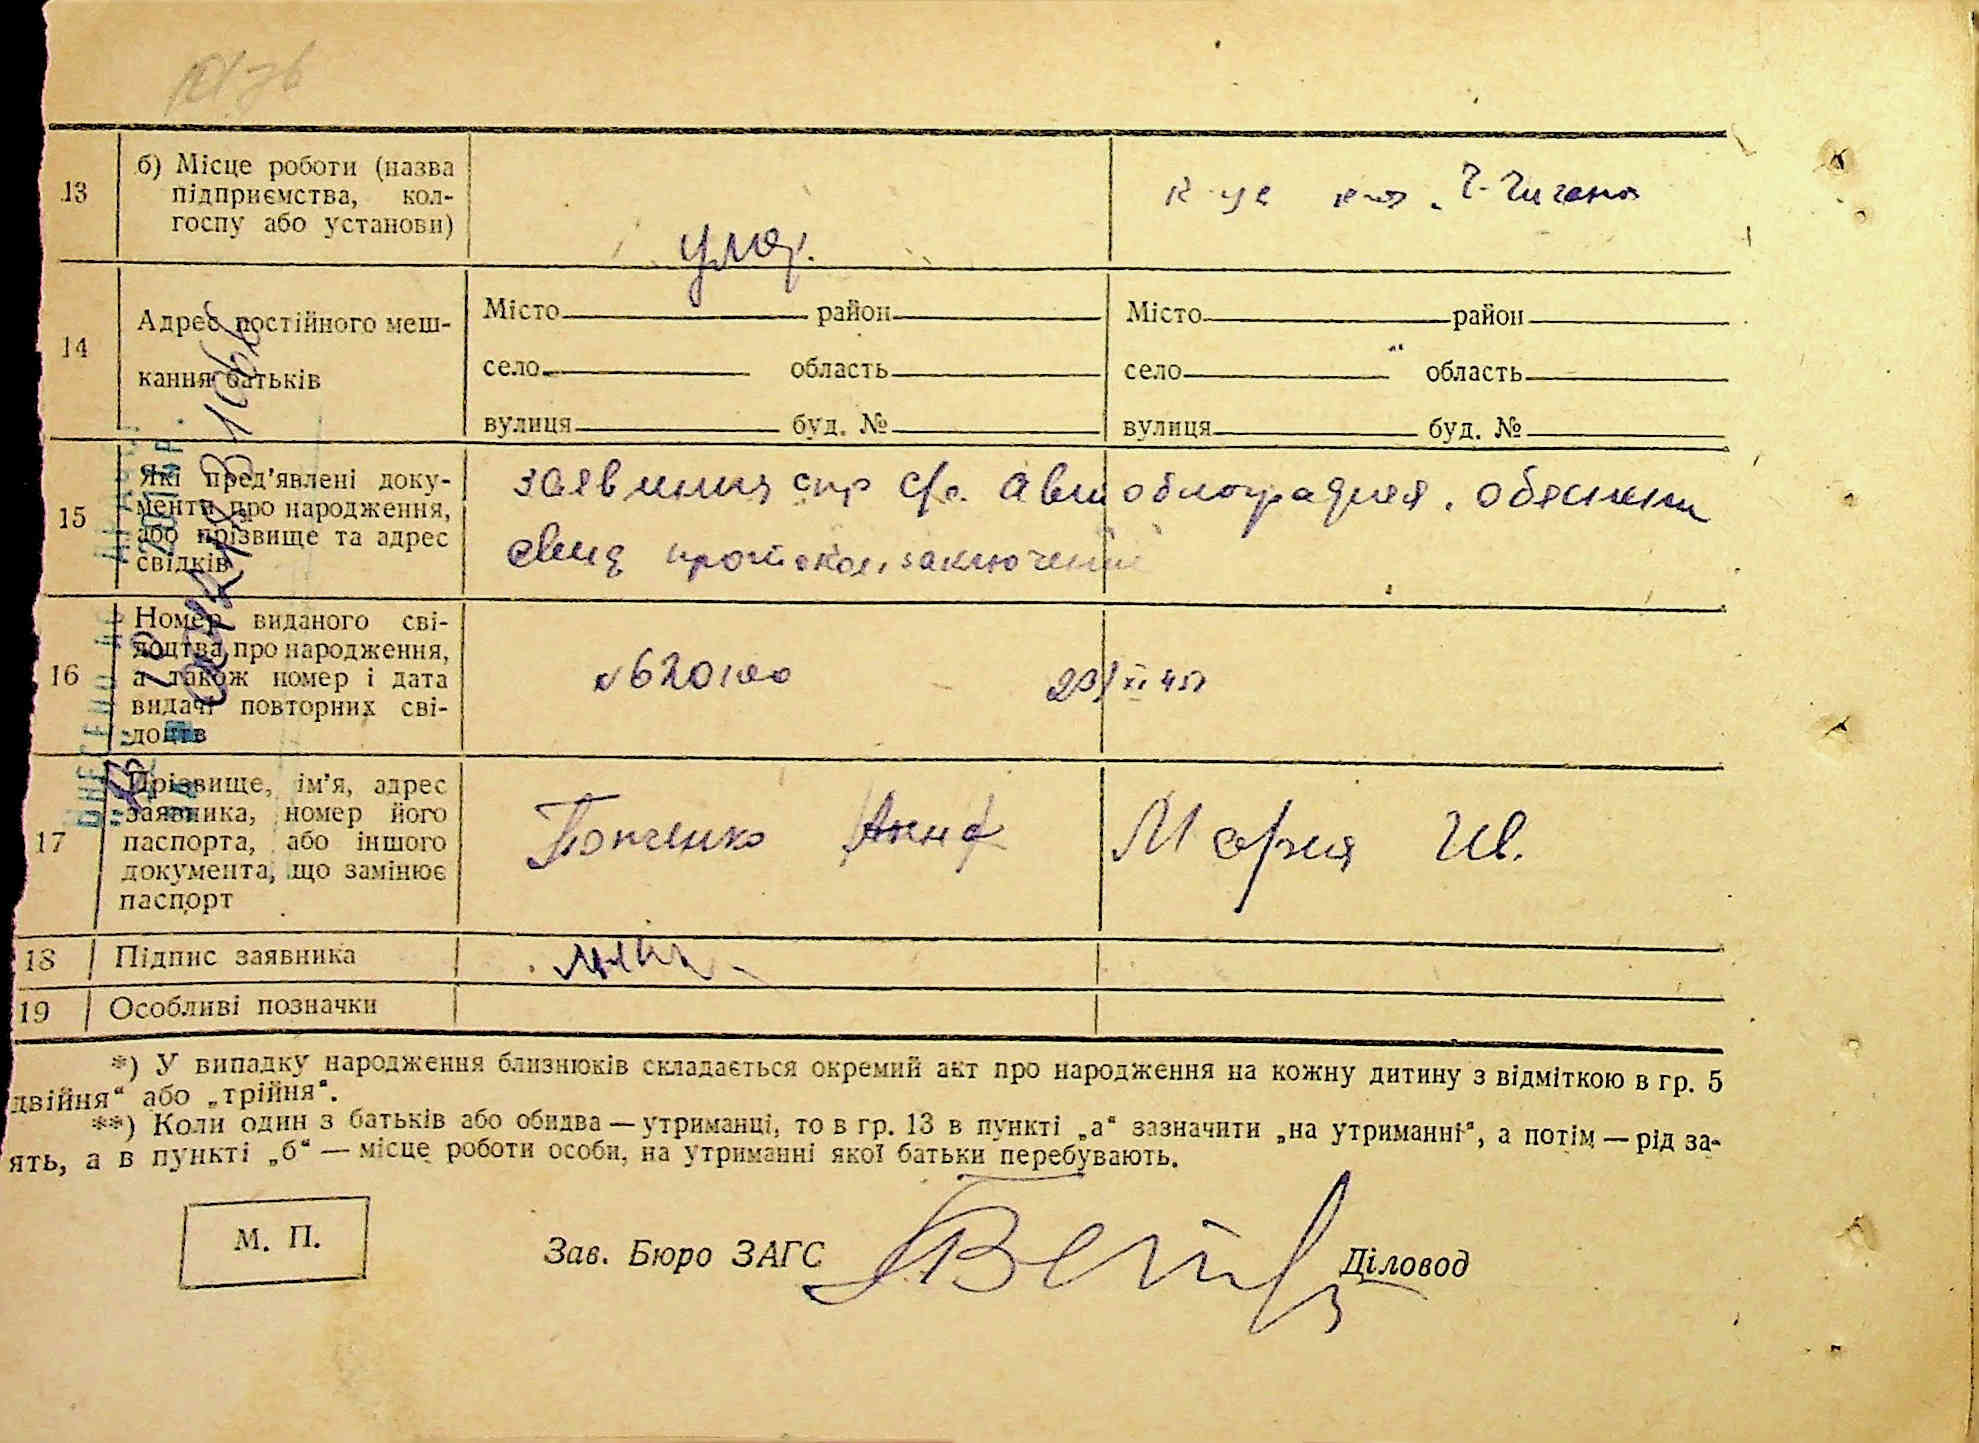 13
б) Місце роботи (назва
підприємства, кол-
госпу або установи)
умер.
14
Адрес постійного меш-
кання батьків
Місто район
село область
вулиця буд. №
Місто район
село область
вулиця буд. №
15
Які пред'явлені доку-
менти про народження,
або прізвище та адрес
свідків
заявления спр с/с. автобиография.
свид протокол, заключений
16
Номер виданого сві-
доцтва про народження,
а також номер і дата
видачі повторних сві-
доцтв
23/XI
17
Прізвище, ім'я, адрес
заявника, номер його
паспорта, або іншого
документа, що замінює
паспорт
Анна Мария Ив.
18
Підпис заявника
19
Особливі позначки
*) У випадку народження близнюків складається окремий акт про народження на кожну дитину з відміткою в гр. 5
двійня“ або „трійня“.
**) Коли один з батьків або обидва — утриманці, то в гр. 13 в пункті „а“ зазначити „на утриманні“, а потім — рід за-
ять, а в пункті „б“ — місце роботи особи, на утриманні якої батьки перебувають.
М. П.
Зав. Бюро ЗАГС
Діловод